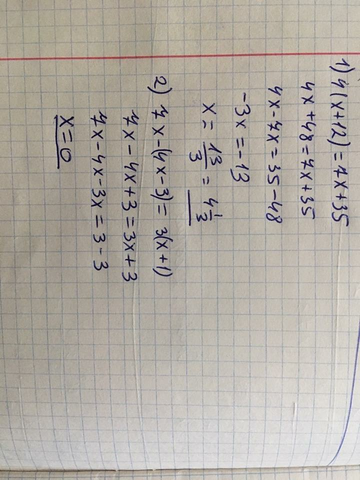 1) 4(x+12) = 7x+35
4x+48 = 7x+35
4x-7x = 35-48
-3x = -13
x = 13/3 = 4 1/3
2) 7x-(4x-3) = 3(x+1)
7x-4x+3 = 3x+3
7x-4x-3x = 3-3
x = 0